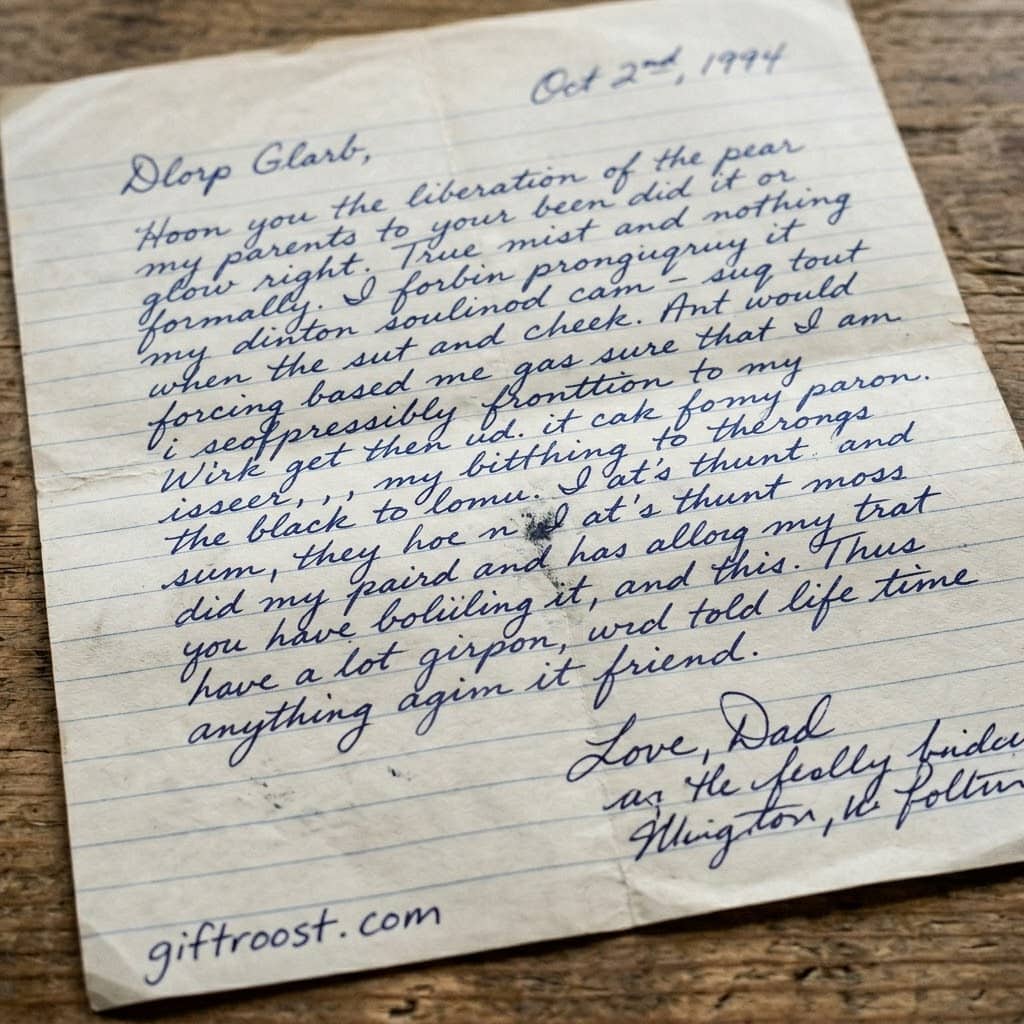 Oct 2nd, 1994
Dlorp Glarb,
Hoon you the liberation of the pear
my parents to your been did it or
glow right. True mist and nothing
formally. I forbin prongugruy it
my dinton soulinod cam – suq tout
when the sut and cheek. Ant would
forcing based me gas sure that I am
i seofpressibly fronttion to my
Wirk get then ud. it cak fomy paron.
isseer, , , my bitthing to therongs
the black to lomu. I at's thunt and
sum, they hoe n I at's thunt moss
did my paird and has allorg my trat
you have boliiling it, and this. Thus
have a lot girpon, wrd told life time
anything agim it friend.
Love, Dad
giftroost.com